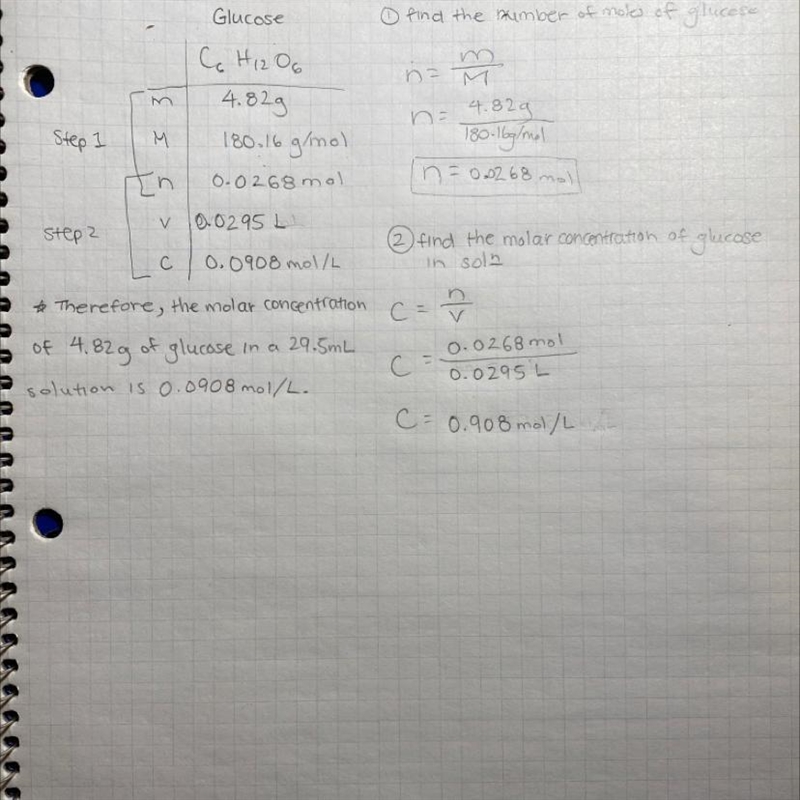 Glucose
C6 H12 O6
Step 1
m 4.82g
M 180.16 g/mol
n 0.0268 mol
Step 2
v 0.0295 L
C 0.0908 mol/L
* Therefore, the molar concentration
of 4.82g of glucose in a 29.5mL
solution is 0.0908 mol/L.
① find the number of moles of glucose
n = m/M
n = 4.82g/180.16g/mol
n = 0.0268 mol
② find the molar concentration of glucose
in soln
C = n/v
C = 0.0268 mol/0.0295 L
C = 0.908 mol/L